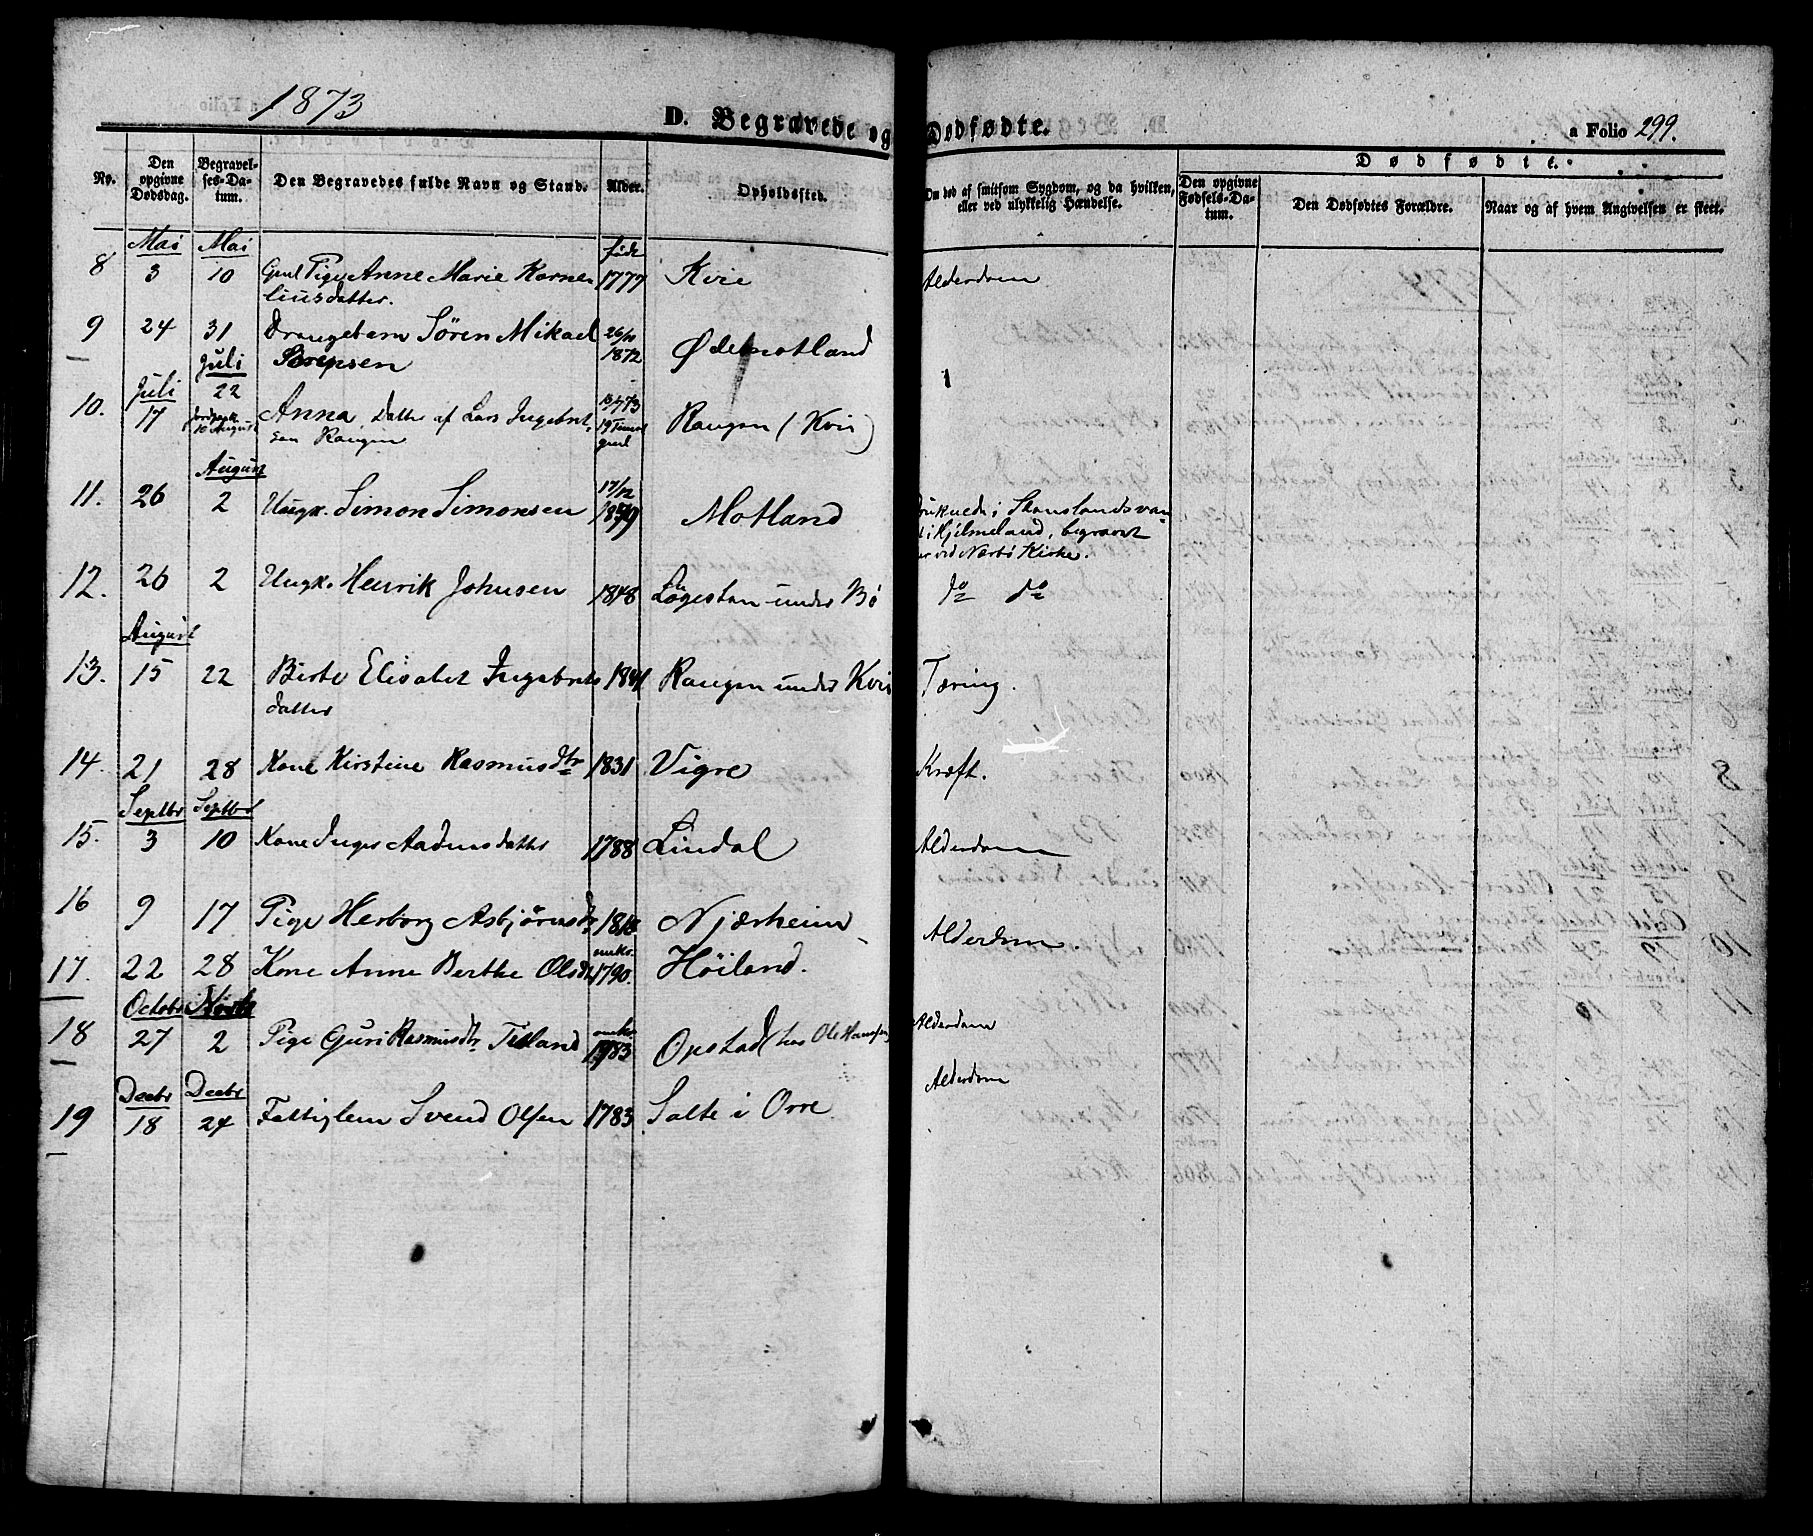 1873
D. Begravede og Dødfødte.
a Folio 299.
No.
Den opgivne Dødsdag.
Begravelses-Datum.
Den Begravedes fulde Navn og Stand.
Alder.
Opholdssted.
Om død af smitsom Sygdom, og da hvilken, eller ved ulykkelig Hændelse.
Dødfødte.
Den opgivne Fødsels-Datum.
Den Dødfødtes Forældre.
Naar og af hvem Angivelsen er skeet.
Mai Mai født
8 3 10 Gml Pige Anne Marie Korne- 1777 Kvie Alderdom
liusdatter.
9 24 31 Drengebarn Sören Mikael 26/10 1872 Ødemotland
Juli Sörensen
Juli 22
10. 17 10 August Anna, Datter af Lars Ingebret- 73 19 Timer gml Rangen (Kvie)
sen Rangen
August
11. 26 2 Ungk. Simon Simonsen 17/12 Motland
i Hjelmeland, begravet
er ved Nærbø Kirke.
12. 26 2 Ungk. Henrik Johnsen 1848 under Bø do do
August
13. 15 22 Birte Elisabet Ingebrets 1841 Rangen under Kvie Tæring.
datter
14. 21 28 Kone Kirstine Rasmusdtr 1831 Vigre Kræft.
Septbr Septbr
15. 3 10 Kone Inger Aadnesdatter 1788 Lindal Alderdom
16 9 17 Pige Herborg Asbjörnsdtr Njærheim Alderdom.
17. 22 28 Kone Anne Berthe Olsdtr omkr. 1790. Höiland.
Octobr Novbr
18 27 2 Pige Guri Rasmusdtr. omkr. 1783 Opstad (hos Ole Hansen) Alderdom
Decbr Decbr
19 18 24 Fattiglem Svend Olsen 1783 Salte i Orre Alderdom